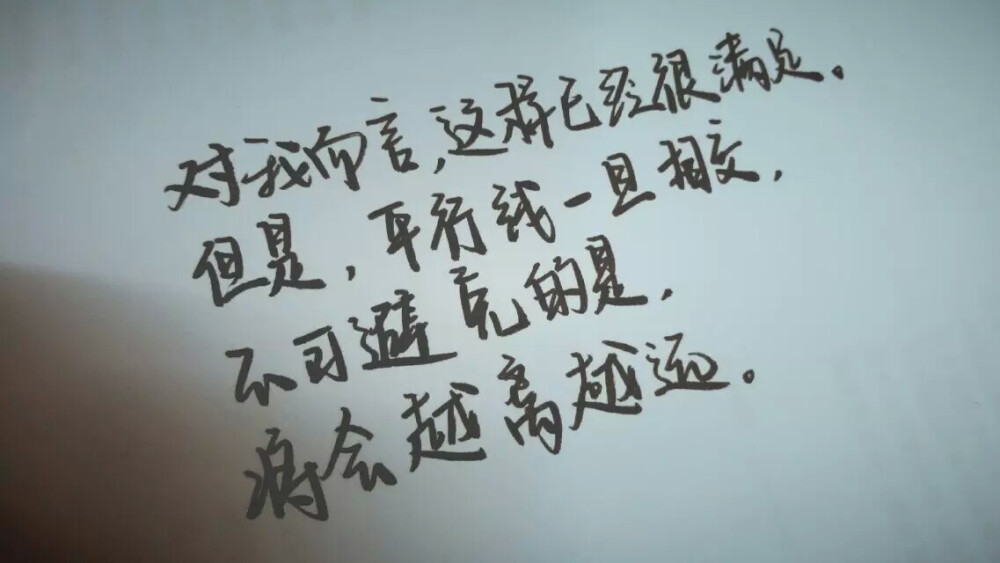 对我而言,这样已经很满足。
但是,平行线一旦相交,
不可避免的是,
将会越离越远。